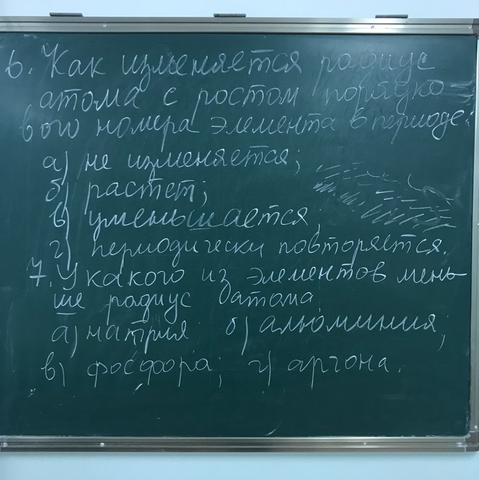 6. Как изменяется радиус
атома с ростом порядко-
вого номера элемента в периоде:
а) не изменяется;
б) растет;
в) уменьшается
г) периодически повторяется.
7. У какого из элементов мень-
ше радиус атома
а) натрия б) алюминия;
в) фосфора; г) аргона.